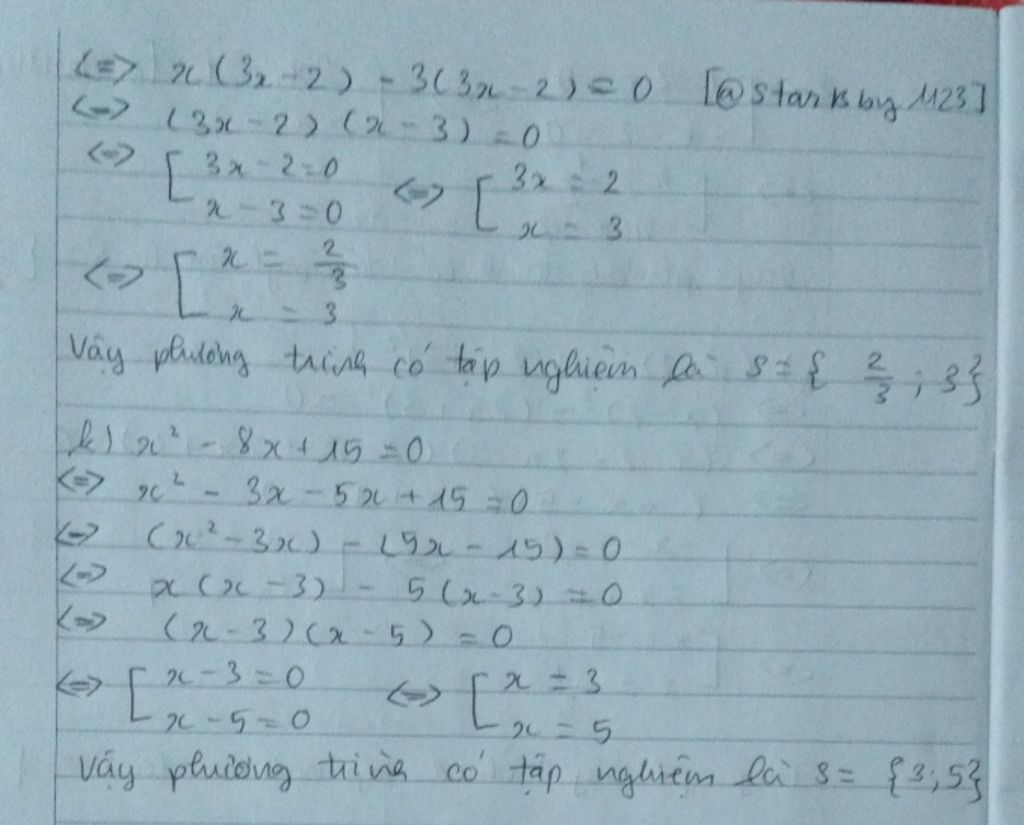 <=> x(3x-2) - 3(3x-2) = 0 [@starisby 1123]
<=> (3x-2)(x-3) = 0
<=> [ 3x-2=0 <=> [ 3x = 2
x-3=0 x = 3
<=> [ x = 2/3
x = 3
Vậy phương trình có tập nghiệm là S = { 2/3 ; 3}
k) x² - 8x + 15 = 0
<=> x² - 3x - 5x + 15 = 0
<=> (x² - 3x) - (5x - 15) = 0
<=> x(x-3) - 5(x-3) = 0
<=> (x-3)(x-5) = 0
<=> [ x-3=0 <=> [ x = 3
x-5=0 x = 5
Vậy phương trình có tập nghiệm là S = {3;5}